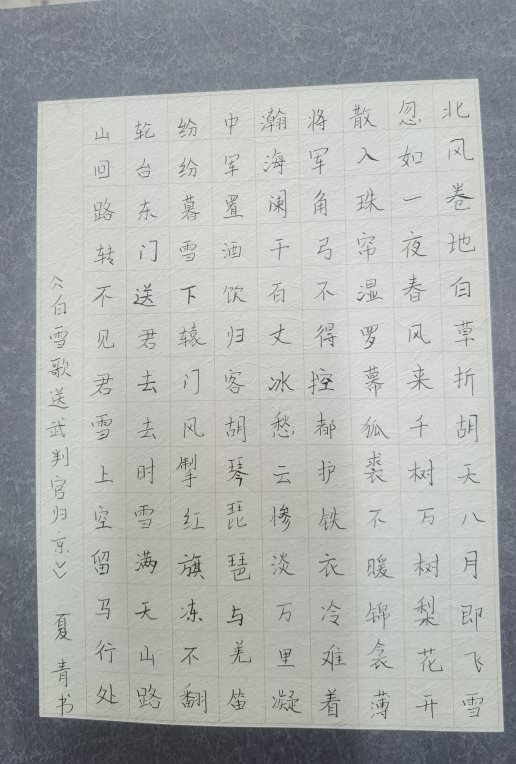 北风卷地白草折胡天八月即飞雪
忽如一夜春风来千树万树梨花开
散入珠帘湿罗幕狐裘不暖锦衾薄
将军角弓不得控都护铁衣冷难着
瀚海阑干百丈冰愁云惨淡万里凝
中军置酒饮归客胡琴琵琶与羌笛
纷纷暮雪下辕门风掣红旗冻不翻
轮台东门送君去去时雪满天山路
山回路转不见君雪上空留马行处
《白雪歌送武判官归京》 夏青书